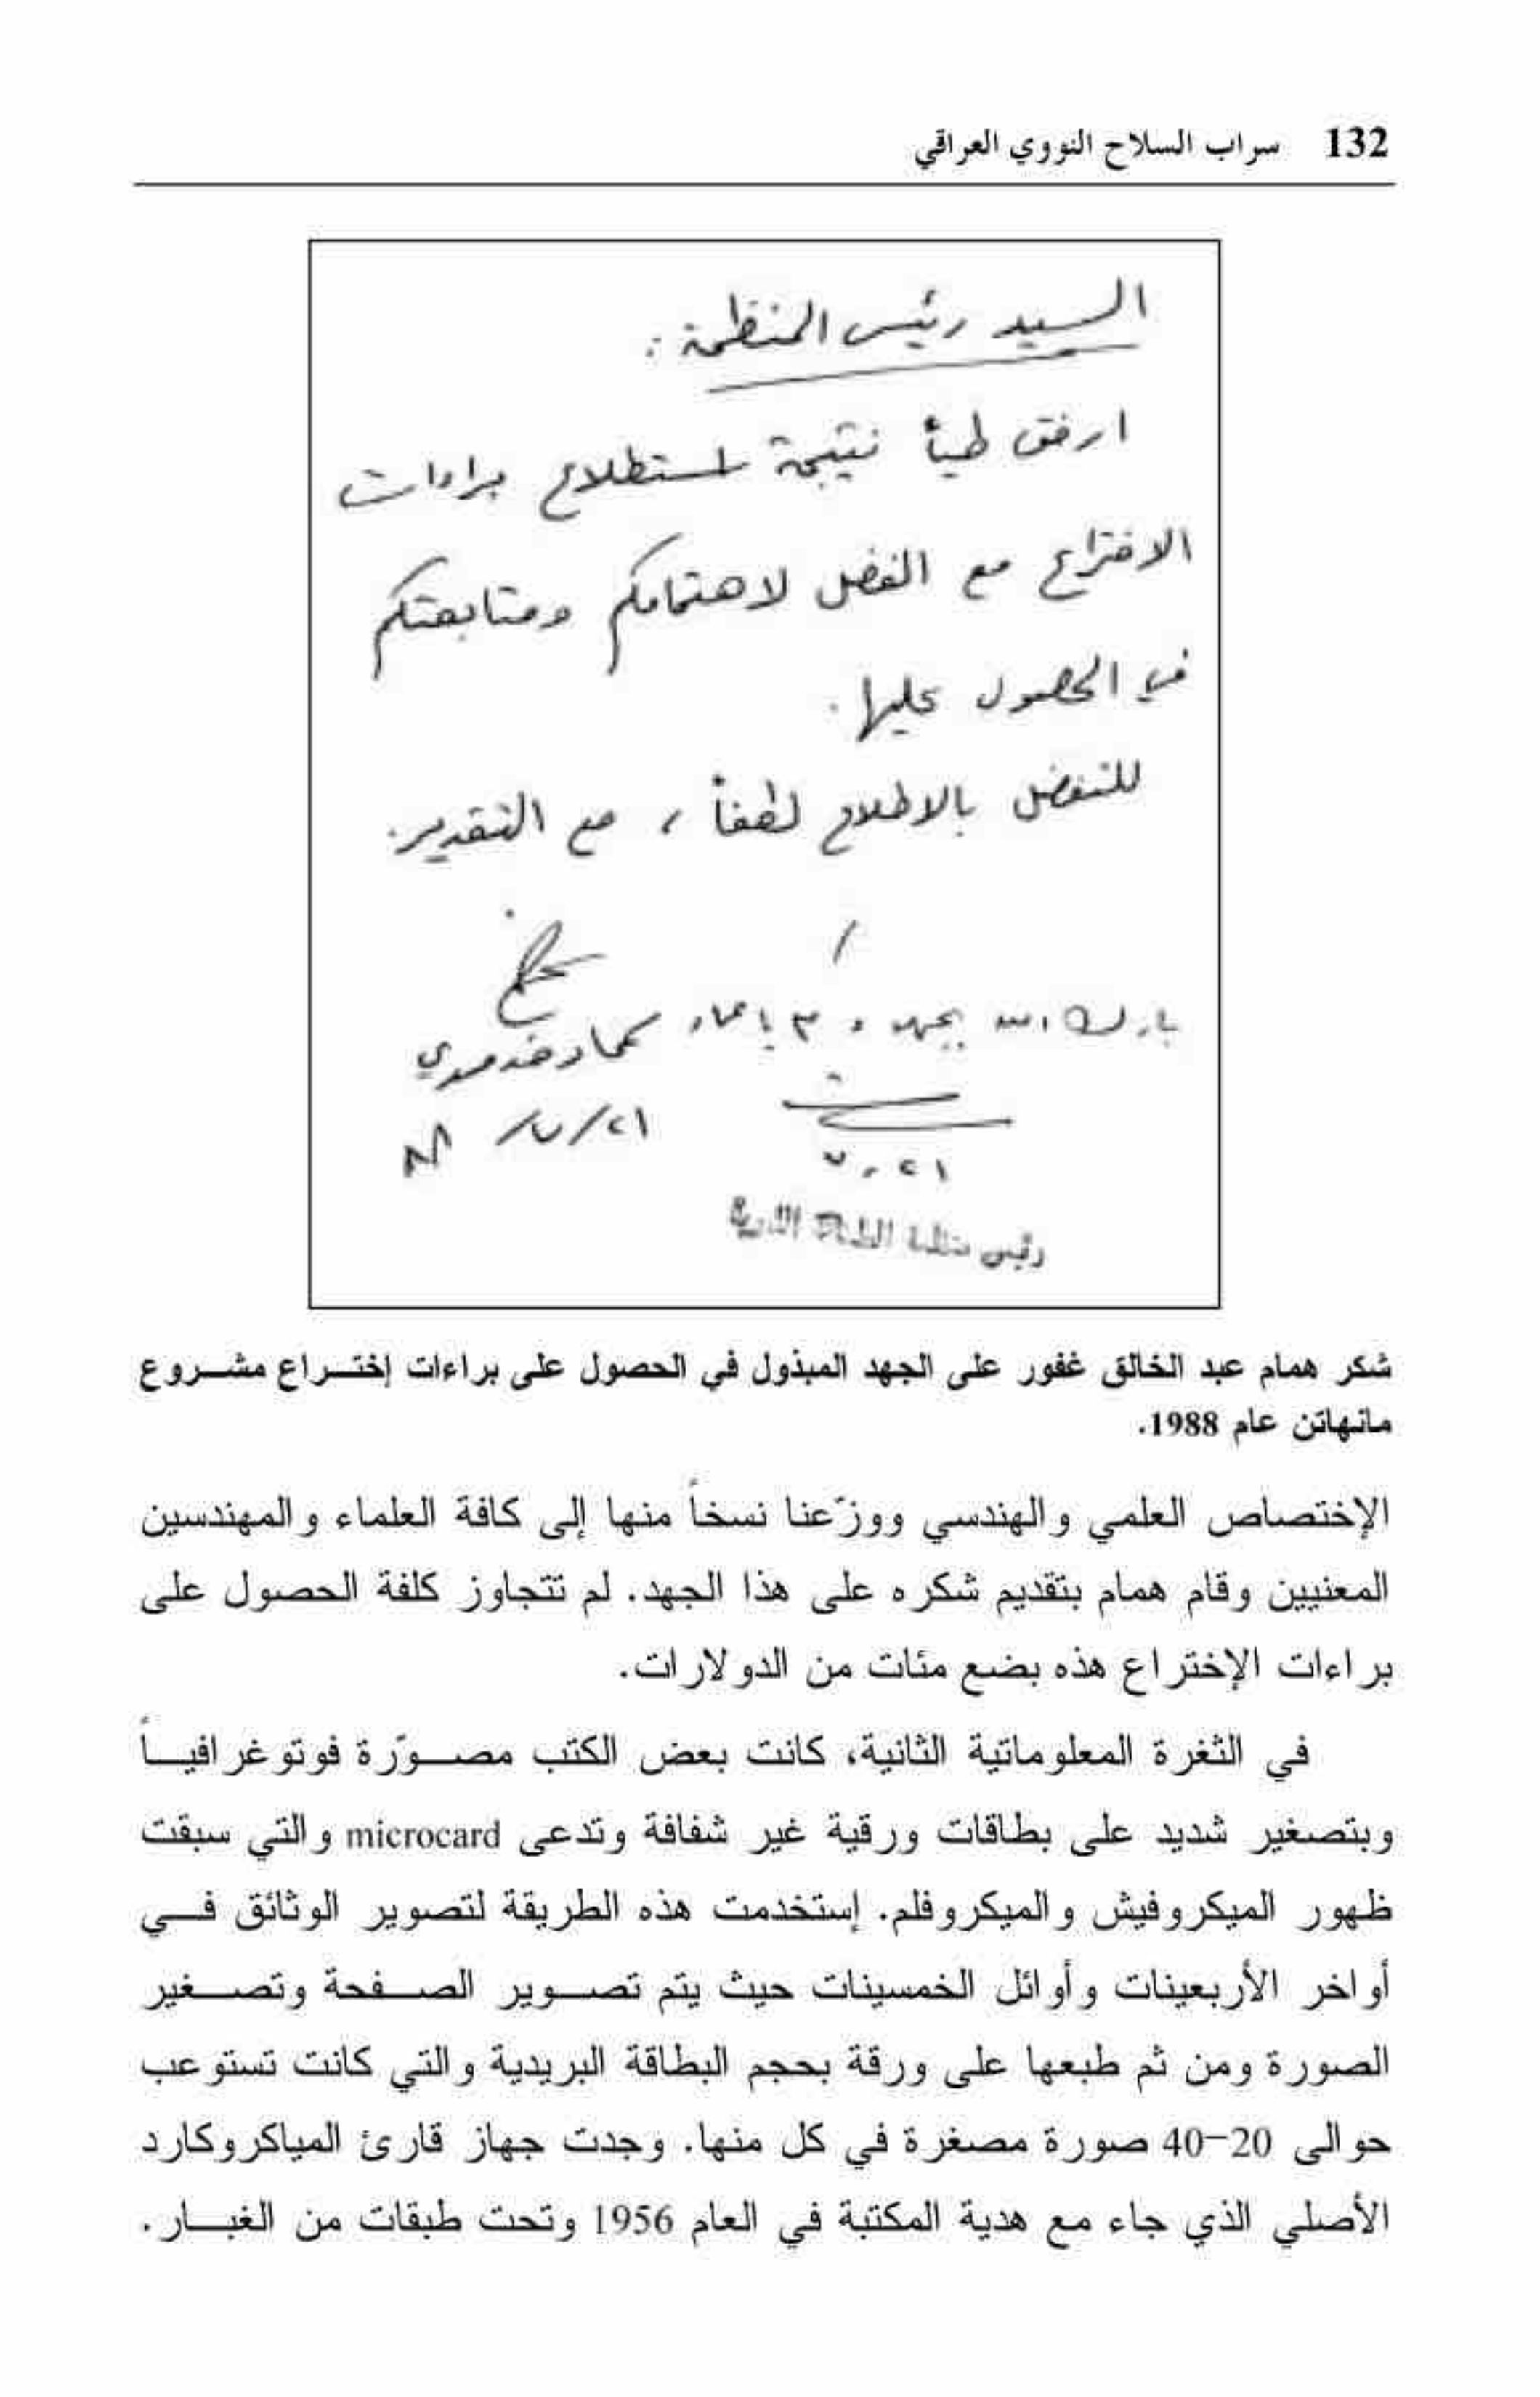 132 سراب السلاح النووي العراقي
السيد رئيس المنظمة :
ارفق طياً نتيجة استطلاع براءات
الاختراع مع الفضل لاهتمامكم ومتابعتكم
في الحصول عليها .
للتفضل بالاطلاع لطفاً ، مع التقدير .
بارك الله
عماد خدوري
٢١/٧/
٢١ - ٧
رئيس منظمة الطاقة الذرية
شكر همام عبد الخالق غفور على الجهد المبذول في الحصول على براءات إختـــراع مشـــروع
مانهاتن عام 1988.
الإختصاص العلمي والهندسي ووزّعنا نسخاً منها إلى كافة العلماء والمهندسين
المعنيين وقام همام بتقديم شكره على هذا الجهد. لم تتجاوز كلفة الحصول على
براءات الإختراع هذه بضع مئات من الدولارات.
في الثغرة المعلوماتية الثانية، كانت بعض الكتب مصـــوّرة فوتوغرافيـــاً
وبتصغير شديد على بطاقات ورقية غير شفافة وتدعى microcard والتي سبقت
ظهور الميكروفيش والميكروفلم. إستخدمت هذه الطريقة لتصوير الوثائق فـــي
أواخر الأربعينات وأوائل الخمسينات حيث يتم تصـــوير الصـــفحة وتصـــغير
الصورة ومن ثم طبعها على ورقة بحجم البطاقة البريدية والتي كانت تستوعب
حوالى 20-40 صورة مصغرة في كل منها. وجدت جهاز قارئ المياكروكارد
الأصلي الذي جاء مع هدية المكتبة في العام 1956 وتحت طبقات من الغبـــار.